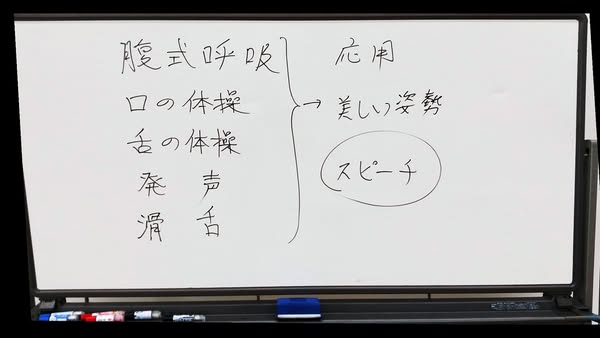 腹式呼吸
口の体操
舌の体操
発 声
滑 舌
応用
→ 美しい姿勢
スピーチ